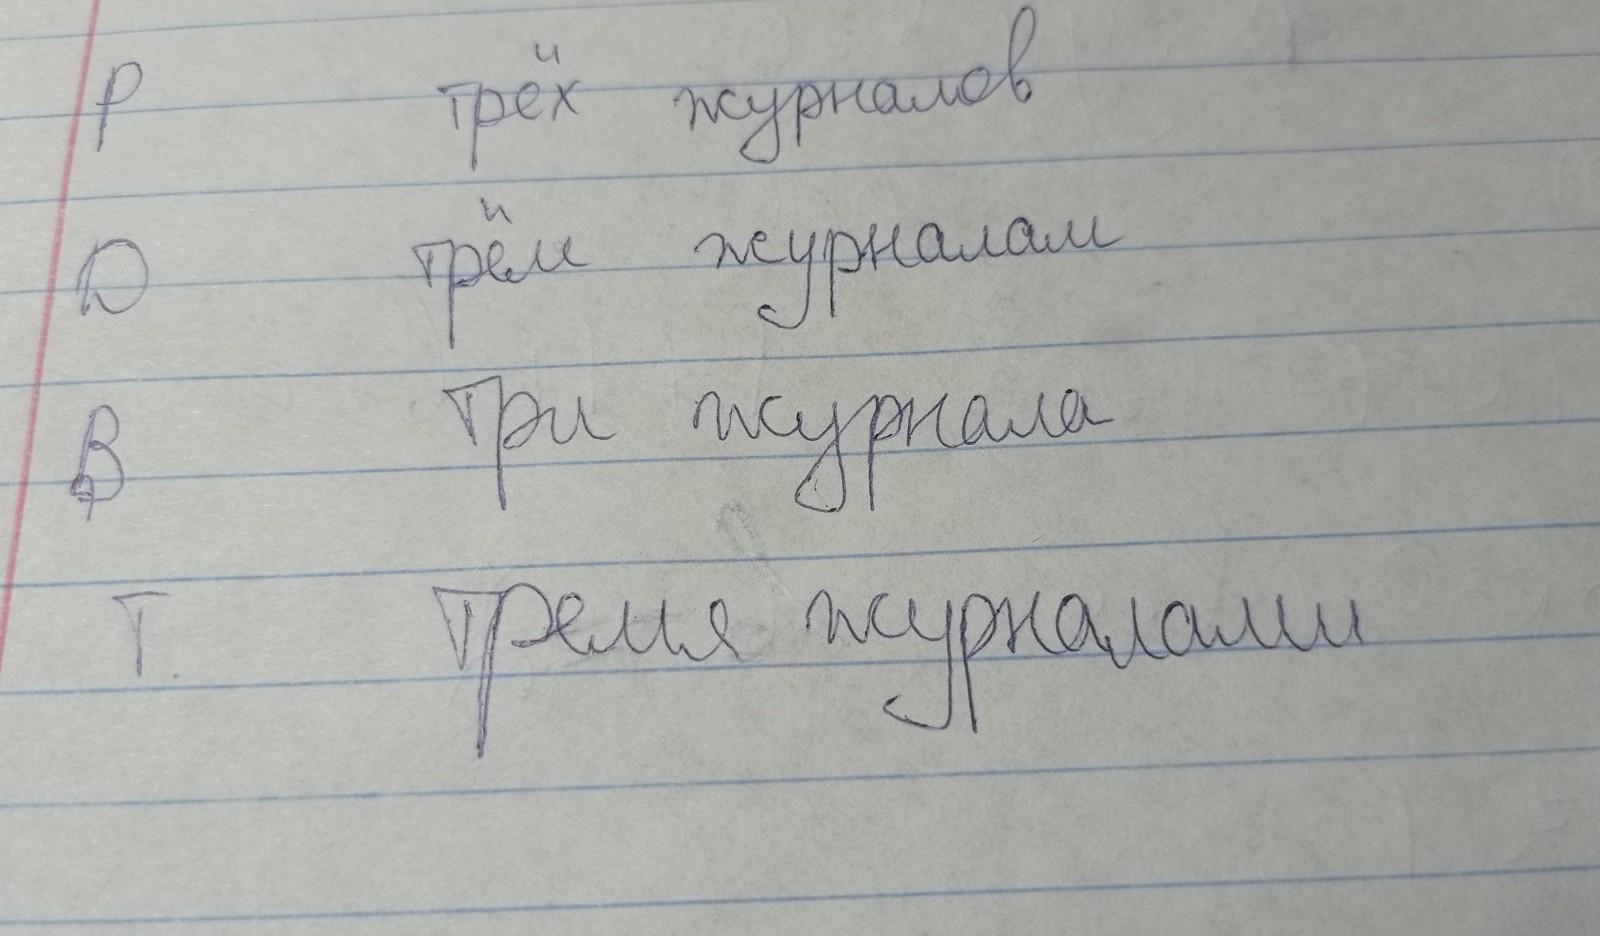 Р трёх журналов
Д трём журналам
В три журнала
Т. тремя журналами